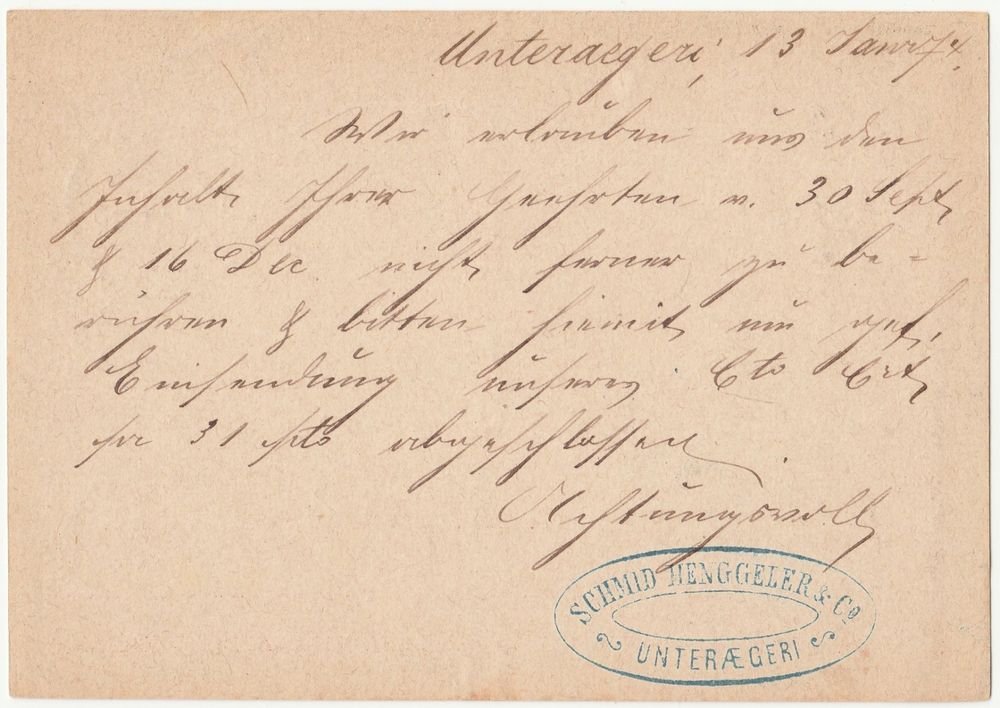 Unteraegeri, 13 Janr 74.
Wir erlauben uns den
Inhalt Ihrer Geehrten v. 30 Sept
& 16 Dec nicht ferner zu be-
rühren & bitten hiemit um gef.
Einsendung unseres Cto Crt
pr 31 pto abgeschlossen.
Achtungsvoll
SCHMID HENGGELER & Co
UNTERÆGERI